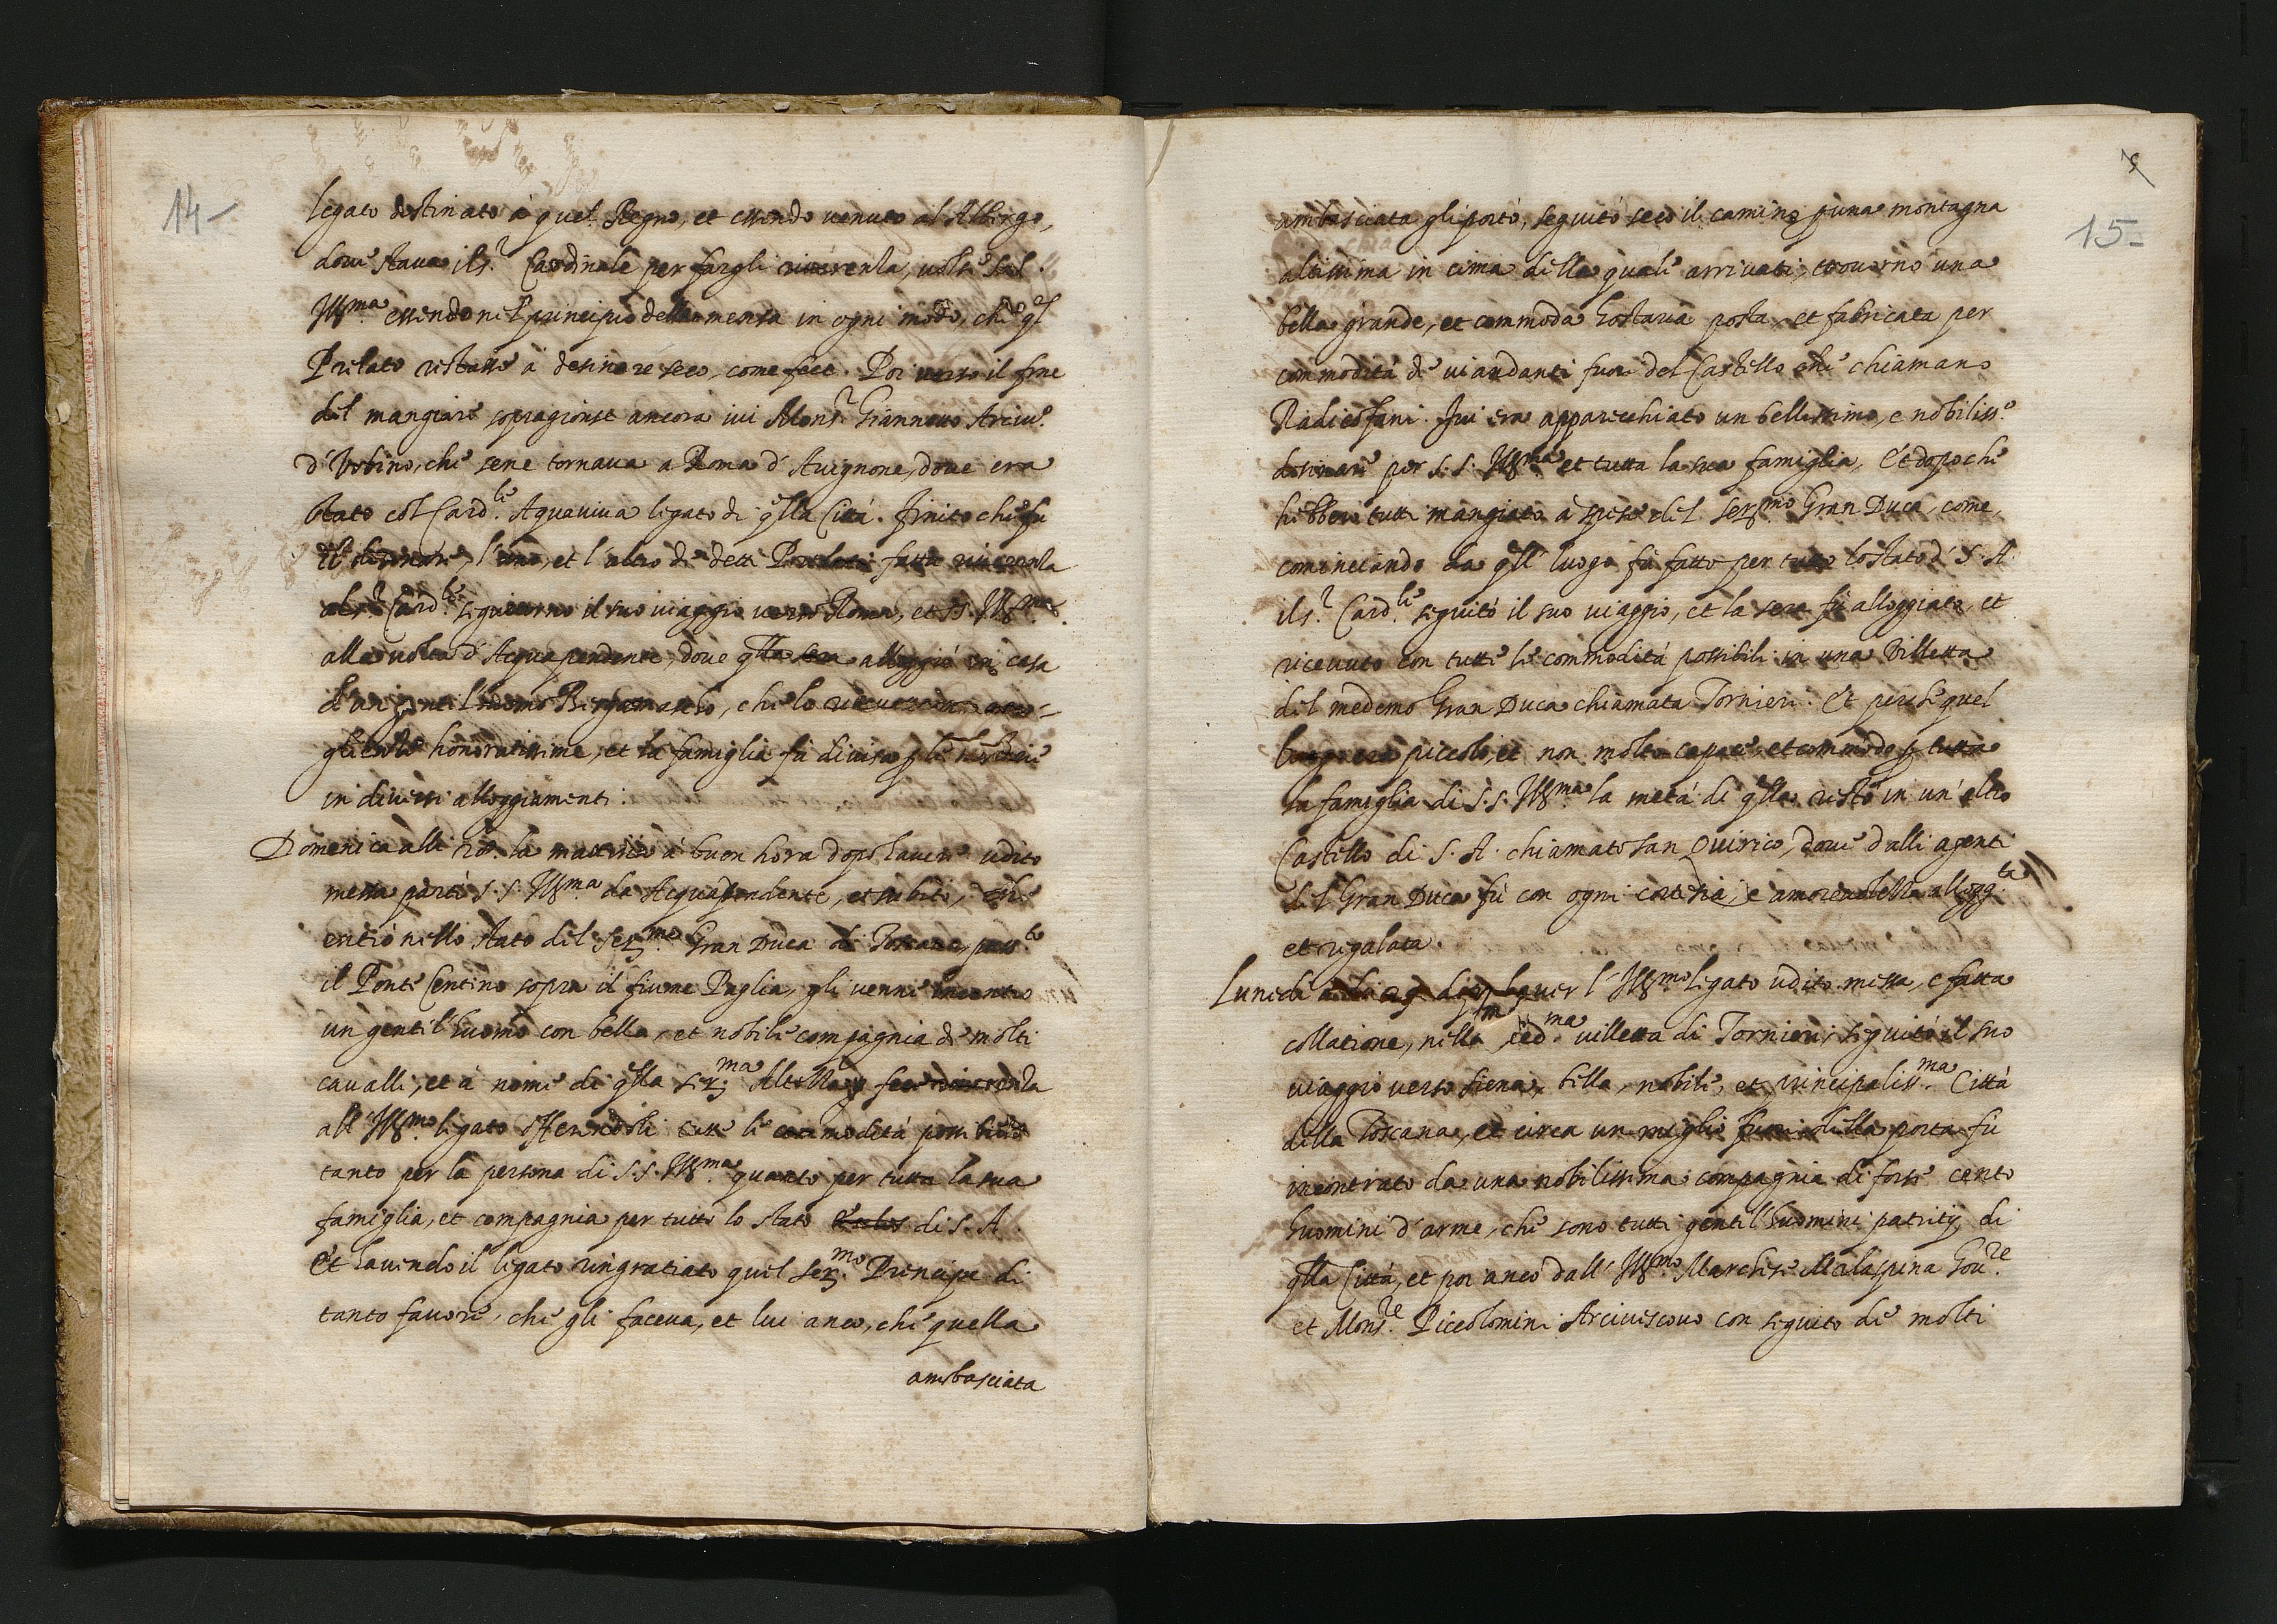 14-
legato destinato à quel Regno, et essendo venuto al Albergo,
dove stava il s.r Cardinale per fargli riverenza, volse
Ill.ma essendo nel principio della mensa in ogni modo, che ql
Prelato restasse à desinare seco, come fece. Poi verso il fine
del mangiare sopragionse ancora ivi Mons.r Giannotto Arciv.o
d'Urbino, che sene tornava a Roma d'Avignone, dove era
stato col Card.le Aquaviva legato di qlla Città. Finito che fu
il desinare, l'uno, et l'altro de detti Prelati fatta riverenza
al s.r Card.le seguitorno il suo viaggio verso Roma, et S.S. Ill.ma
alla volta d'Acquapendente, dove qlla sera alloggiò in casa
d'un gentil'huomo Bergamasco, che lo
honoratissime, et la famiglia fù divisa
in diversi alloggiamenti.
Domenica alli 28. la mattina à buon hora dopo haver udito
messa partì S.S. Ill.ma da Acquapendente, et subito, che
entrò nello stato del Ser.mo Gran Duca di Toscana, pass.to
il Ponte Centino sopra il fiume Paglia, gli venne incontro
un gentil'huomo con bella, et nobile compagnia de molti
cavalli, et à nome di qlla Ser.ma Altezza fece riverenza
all'Ill.mo legato offerendoli tutte le commodità possibile
tanto per la persona di S.S. Ill.ma quanto per tutta la sua
famiglia, et compagnia per tutto lo stato di S.A.
Et havendo il legato ringratiato quel Ser.mo Principe di
tanto favore, che gli faceva, et lui anco, che quella
ambasciata
15-
ambasciata gli portò, seguitò seco il camino p una montagna
altissima in cima della quale arrivati, trovorno una
bella grande, et commoda hostaria posta, et fabricata per
commodità de viandanti fuori del Castello che chiamano
Radicofani. Ivi era apparecchiato un bellissimo, e nobiliss.o
desinare per S.S. Ill.ma et tutta la sua famiglia, Et dopo che
hebbero tutti mangiato à spese del Ser.mo Gran Duca, come,
cominciando da qll luogo fù fatto per tutto lo stato di S.A.
il s.r Card.le seguitò il suo viaggio, et la sera fù alloggiato, et
ricevuto con tutte le commodità possibili in una Villetta
del medemo Gran Duca chiamata Tornieri. Et perche quel
luogo era piccolo, et non molto capace, et commodo p tutta
la famiglia di S.S. Ill.ma la metà di qlla restò in un'altro
Castello di S.A. chiamato san Quirico, dove dalli agenti
del Gran Duca fù con ogni cortesia, e amorevolezza allogg.ta
et regalata.
Lunedì alli 29 haver l'Ill.mo legato udito messa, e fatta
collatione, nella med.ma villetta di Tornieri, seguitò il suo
viaggio verso Siena, bella, nobile, et principaliss.ma Città
della Toscana, et circa un miglio fuori della porta fù
incontrato da una nobilissima compagnia di forse cento
huomini d'arme, che sono tutti gentil'huomini patritij di
qlla Città, et poi anco dall'Ill.mo Marchese Malaspina Gov.re
et Mons.re Piccolomini Arcivescovo con seguito de molti